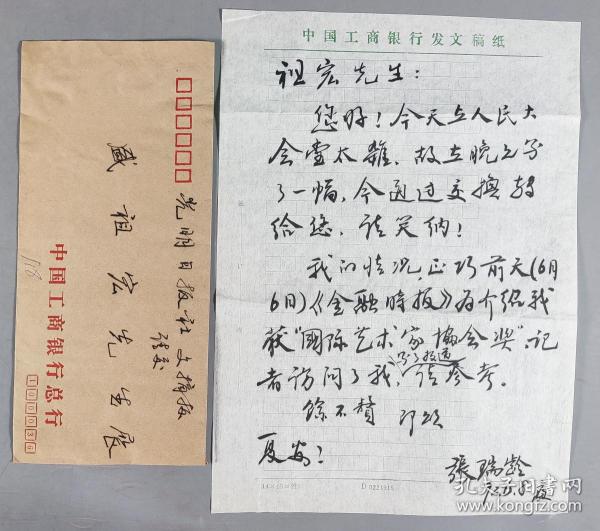 光明日报社 文摘报
请交
盛祖宏先生展
中国工商银行总行
100036
中国工商银行发文稿纸
祖宏先生：
您好！今天在人民大
会堂太难，故在晚上写
了一幅，今通过交换转
给您，请笑纳！
我的情况，正巧前天(6月
6日)《金融时报》为介绍我
获“国际艺术家协会奖”，记
者访问了我，写了报道，请参考。
馀不赘 即颂
夏安！
張瑞龄
孔夫子旧书网
www.kongfz.com